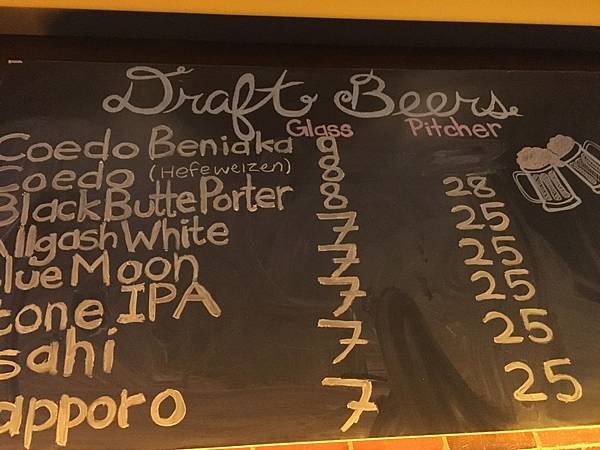 Draft Beers
Glass Pitcher
Coedo Beniaka 9
Coedo (Hefeweizen) 8
Black Butte Porter 8 28
Allgash White 7 25
lue Moon 7 25
tone IPA 7 25
sahi 7 25
apporo 7 25